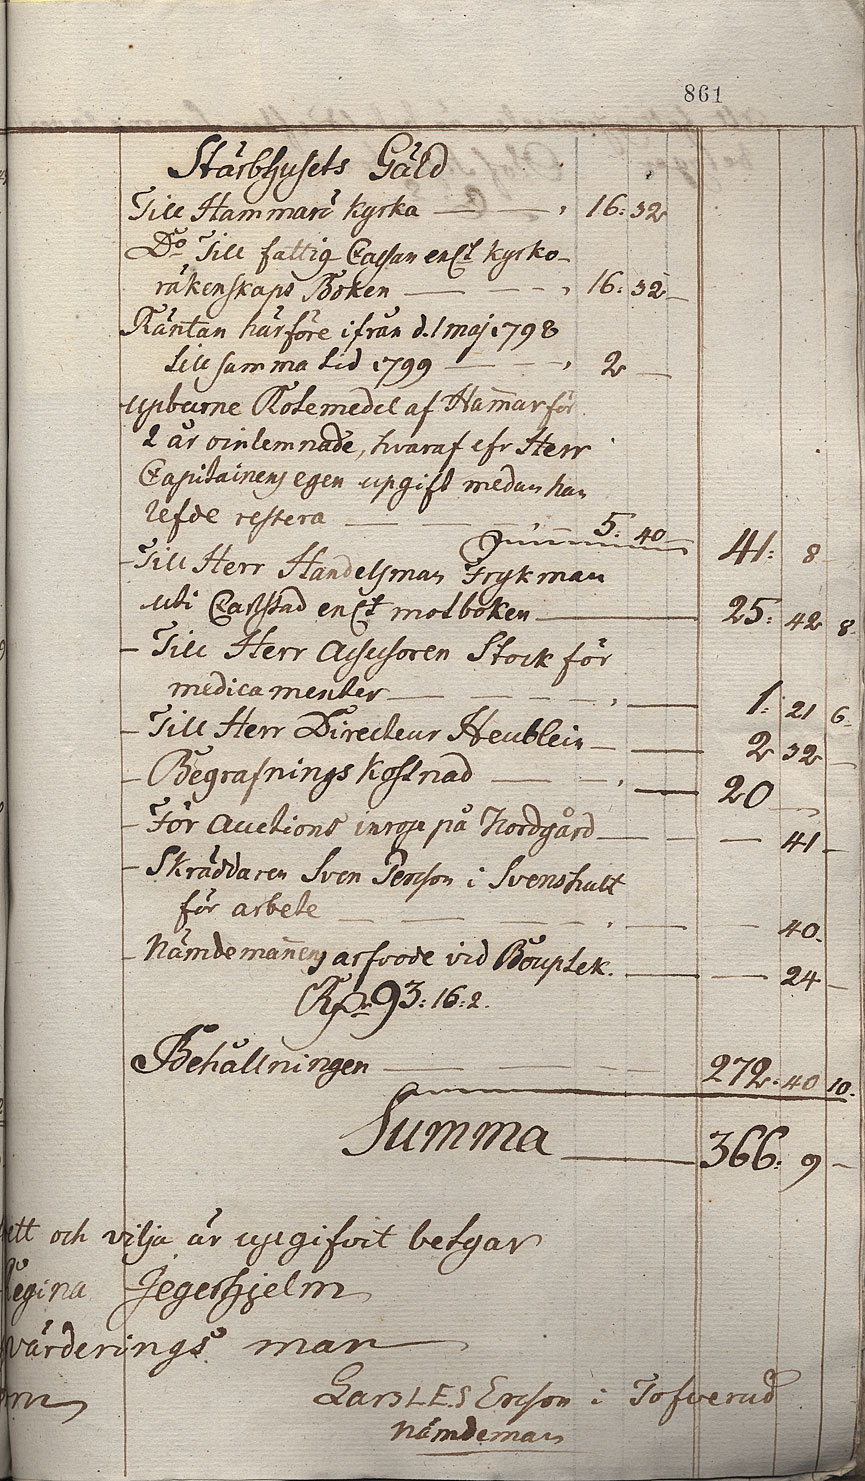 861
Stärbhusets Gäld
Till Hammarö kyrka — — — 16: 32
Do Till fattig Cassan enl:t kyrko-
räkenskaps Boken — — — 16: 32 —
Räntan härföre ifrån d. 1 maj 1798
till samma tid 1799 — — — 2 —
upburne Rotemedel af Hammar för
2 år oinlemnade, hvaraf efr Herr
Capitainens egen upgift medan han
lefde restera — — — 5: 40 — 41: 8
— Till Herr Handelsman Frykman
uti Carlstad enl:t motboken — 25: 42 8
— Till Herr Assessoren Stock för
medicamenter — — — 1: 21 6
— Till Herr Directeur Heublein — — 2 32 —
— Begrafnings kostnad — — — 20 —
— För auctions inrop på Nordgård — — 41 —
— Skräddaren Sven Persson i Svenshult
för arbete — — — 40.
— Nämdemannens arfvode vid Bouptek. — — 24 —
Rdr 93: 16: 2.
Behållningen — — — 272. 40 10.
Summa — 366: 9 —
ett och vilja är upgifvit betygar
Regina Jegerhjelm
värderings man
Lars L.E.S Ercson i Tofverud
Nämdeman